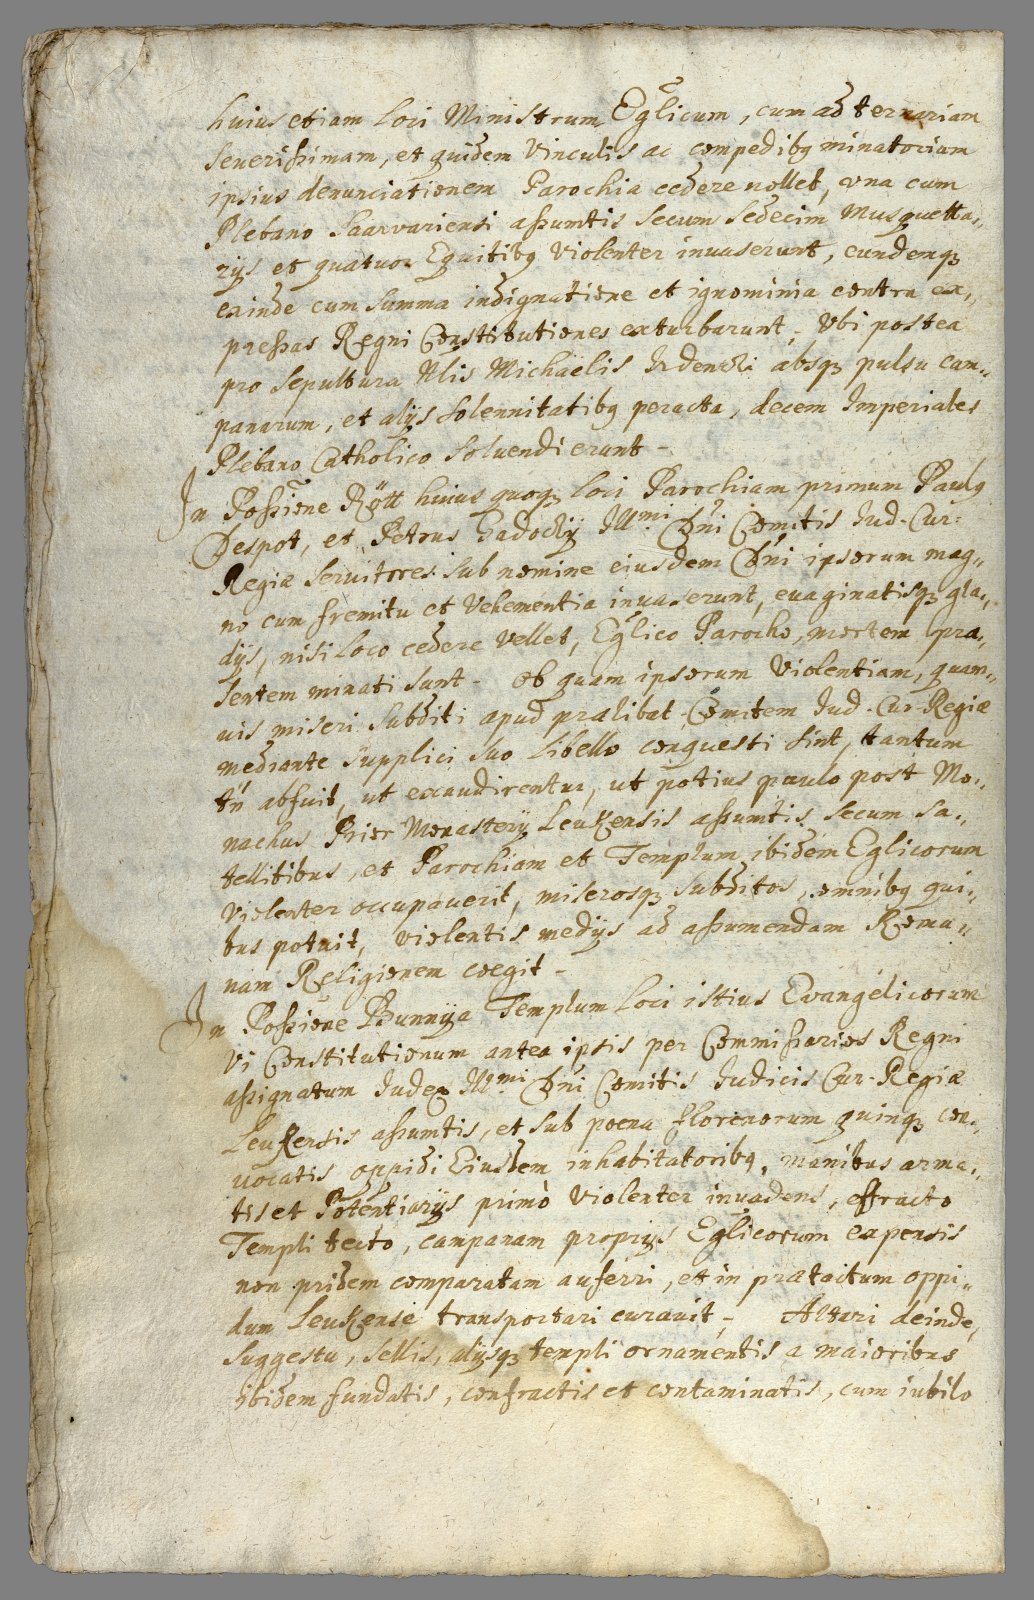 huius etiam loci Ministrum Eg̃licum, cum ad ternariam
seuerißimam, et quidem Vinculis ac compedibq minatoriam
ipsius denunciationem Parochia cedere nollet, vna cum
Plebano Saarvariensi aßumtis secum sedecim Musquetta,,
rÿs et quatuor Equitibq Violenter inuaserunt, eundemqz
exinde cum summa indignatione et ignominia contra ex,,
preßas Regni Constitutiones exturbarunt, Vbi postea
pro sepultura Nlis Michaëlis absqz pulsu cam,,
panarum, et alÿs solennitatibq peracta, decem Imperiales
Plebano Catholico soluendi erunt –
In Poßione Rött huius quoqz loci Parochiam primum Paulq
Despot, et Petrus Gadoczÿ Ill.mi Dñi Comitis Iud. Cur.
Regiæ Seruitores sub nomine eiusdem Dñi ipsorum mag,,
no cum fremitu et Vehementia inuaserunt, euaginatisqz gla,,
dÿs, nisi loco cedere vellet, Eg̃lico Parocho, mortem præ,,
sentem minati sunt – ob quam ipsorum Violentiam, quam,,
uis miseri Subditi apud prælibat. Comitem Iud. Cur. Regiæ
mediante supplici suo libello conquesti sint, tantum
tñ abfuit, ut exaudirentur, ut potius paulo post Mo,,
nachus Prior Monasterÿ Leukensis aßumtis secum Sa,,
tellitibus, et Parochiam et Templum ibidem Eglicorum
Violenter occupauerit, miserosqz subditos, omnibq qui,,
bus potuit, violentis medÿs ad aßumendam Roma,,
nam Religionem coegit –
In Poßione Bunnÿa Templum loci istius Evangelicorum
Vi Constitutionum antea ipsis per Commißarios Regni
aßignatum Iudex Ill.mi Dñi Comitis Iudicis Cur. Regiæ
Leukensis aßumtis, et sub poena florenorum quinqz con,,
uocatis oppidi Eiusdem inhabitatoribq, manibus arma,,
tis et Potentiarÿs primò Violenter inuadens, effracto
Templi tecto, campanam proprÿs Eglicorum expensis
non pridem comparatam auferri, et in prætactum oppi,,
dum Leukense transportari curauit, – Altari deinde,
Suggestu, sellis, alÿsqz templi ornamentis a maioribus
ibidem fundatis, confractis et contaminatis, cum iubilo